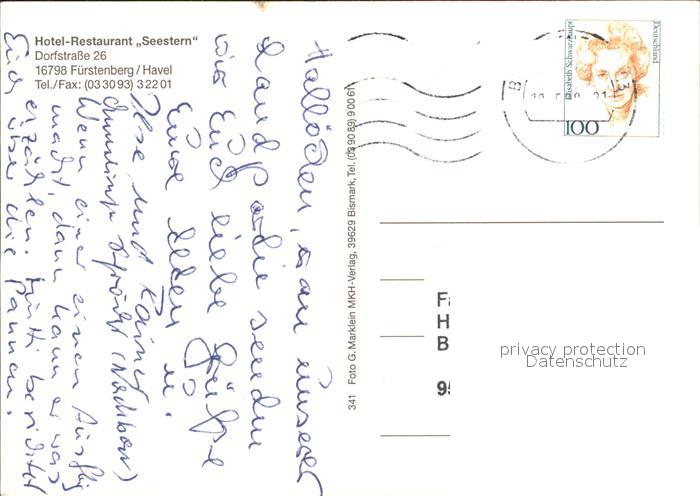 Hotel-Restaurant „Seestern“
Dorfstraße 26
16798 Fürstenberg/Havel
Tel./Fax: (03 30 93) 3 22 01
Hallöchen, von unserer
Landpartie senden
wir Euch liebe Grüße
Eure
Ilse und Rainer
Sprößl (Nachbar)
Wenn einer einen Ausflug
macht, dann kann er was
erzählen. berichtet
Euch über die Pannen.
341 Foto G. Marklein MKH-Verlag, 39629 Bismark, Tel. (03 90 89) 9 00 61
Elisabeth Schwarzhaupt
Deutschland
100
H
B
privacy protection
Datenschutz